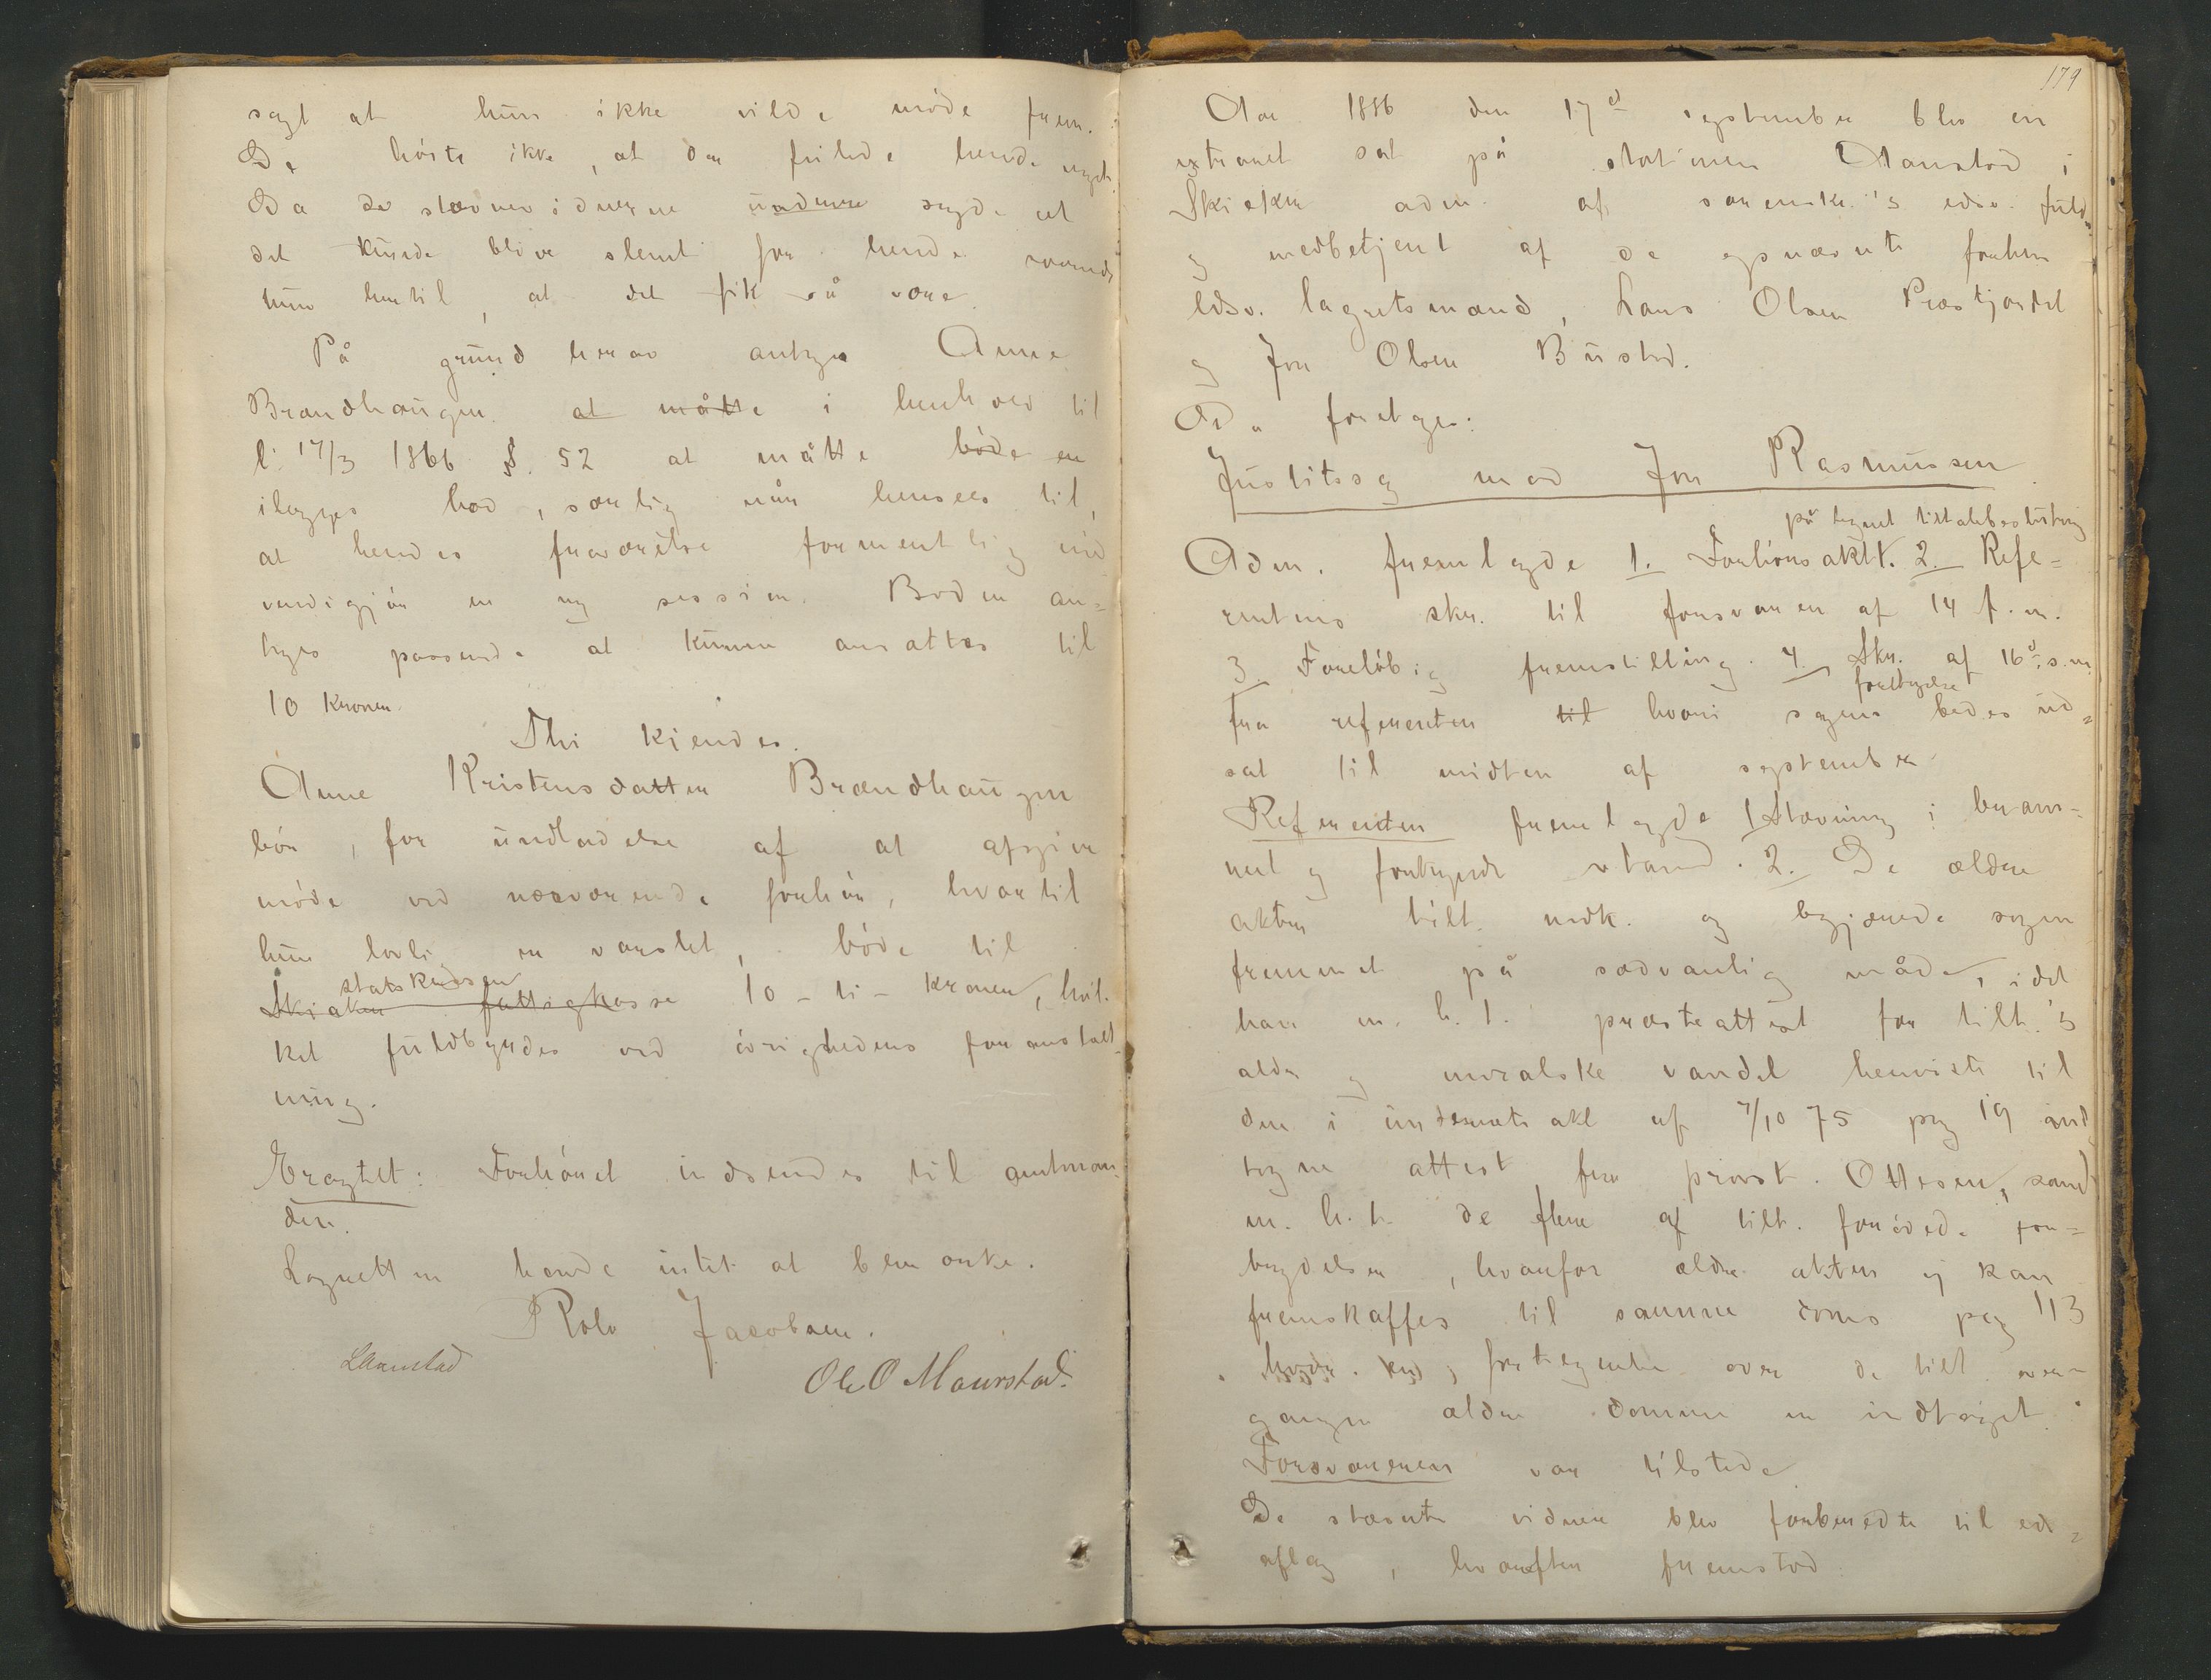 sagt at hun ikke vilde møde frem.
De hørte ikke, at der feilede hende noget.
Da de stævnevidnerne sagde at
det kunde blive slemt for hende svarede
hun hertil, at det fik så være.
På grund herav antages Anne
Brændhaugen at måtte i henhold til
l. 17/3 1866 §. 52 at måtte bøde en
ilægges bod, særlig når henses til,
at hendes fraværelse formentlig nød
vendigjør en ny session. Boden an=
tages passende at kunne ansættes til
10 kroner.
Thi kjendes.
Anne Kristensdatter Brændhaugen
bør, for undladelse af at afgive
møde ved nærværende forhør, hvortil
hun lovlig er varslet, bøde til
statskassen
Skiaker fattigkasse 10 - ti - kroner, hvil.
ket fuldbyrdes ved øvrighedens foranstalt
ning.
Eragtet: Forhøret indsendes til amtman
den.
Lagretten havde intet at bemærke.
Rolv Jacobsen.
LAamstad
Ole O Maurstad.
179
Aar 1886 den 17d september blev en
extraret sat på stationen Aanstad i
Skiaker adm. af sorenskr.'s edsv. fuldm
og medbetjent af de opnævnte forhen
edsv. lagretsmænd, Hans Olsen Præstjordet
og Jon Olsen Bustad.
Da foretoges:
Justitssag mod Jon Rasmussen
på tegnet tiltalebeslutning
Adm. fremlagde 1. Forhørsakt. 2. Refe=
rentens skr. til forsvareren af 14 f. m.
3. Foreløbig fremstilling. 4. Skr. af 16d s. m.
foretagelse
fra referenten til hvori sagens bedes ud=
sat til midten af september
Referenten fremlagde 1 Stævning i beram=
met og forkyndt stand. 2. De ældre
akter tilt. vedk. og begjærede sagen
fremmet på sædvanlig måde, idet
han m. h. t. præsteattest for tilt.'s
alder og moralske vandel henviste til
den i underrets akt af 7/10 75 pag 19 ind
tagne attest fra provst Ottesen, samt
m. h. t. de flere af tilt. forøvede for=
brydelser, hvorfor ældre akter ej kan
fremskaffes til samme doms pag 113
fortegnelse over de tilt. over=
gangne ældre domme er indtaget.
Forsvareren var tilstede
De stævnte vidner blev forberedte til eds=
aflæg, hvorefter fremstod